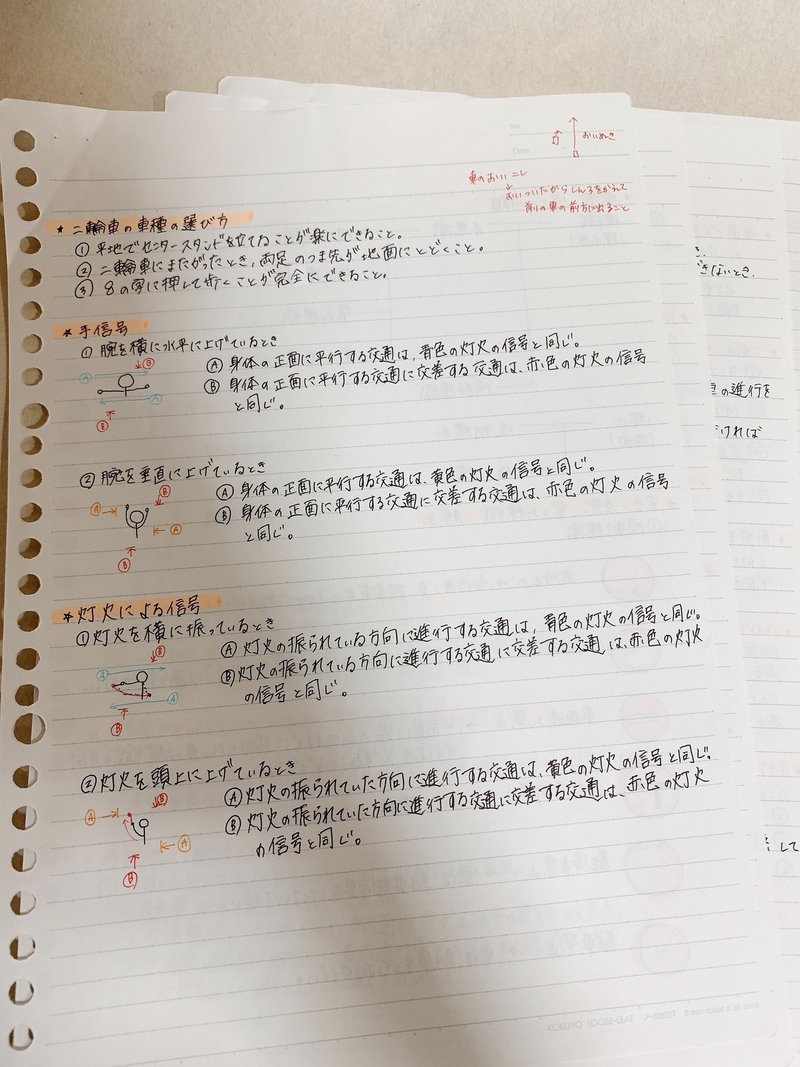 No.
Date
おいぬき
車のおいこし
おいついたがらしんろをかえて
前の車の前方に出ること
★二輪車の車種の選び方
① 平地でセンタースタンドを立てることが楽にできること。
② 二輪車にまたがったとき、両足のつま先が地面にとどくこと。
③ 8の字に押して歩くことが完全にできること。
★手信号
① 腕を横に水平に上げているとき
Ⓐ 身体の正面に平行する交通は、青色の灯火の信号と同じ。
Ⓑ 身体の正面に平行する交通に交差する交通は、赤色の灯火の信号
と同じ。
Ⓑ
Ⓐ
Ⓐ
Ⓑ
② 腕を垂直に上げているとき
Ⓐ 身体の正面に平行する交通は、黄色の灯火の信号と同じ。
Ⓑ 身体の正面に平行する交通に交差する交通は、赤色の灯火の信号
と同じ。
Ⓑ
Ⓐ
Ⓐ
Ⓑ
★灯火による信号
① 灯火を横に振っているとき
Ⓐ 灯火の振られている方向に進行する交通は、青色の灯火の信号と同じ。
Ⓑ 灯火の振られている方向に進行する交通に交差する交通は、赤色の灯火
の信号と同じ。
Ⓑ
Ⓐ
Ⓐ
Ⓑ
② 灯火を頭上に上げているとき
Ⓐ 灯火の振られていた方向に進行する交通は、黄色の灯火の信号と同じ。
Ⓑ 灯火の振られていた方向に進行する交通に交差する交通は、赤色の灯火
の信号と同じ。
Ⓑ
Ⓐ
Ⓐ
Ⓑ
きないとき.
の進行を
ければ
して
KOKUYO LOOSE-LEAF ノ-836BT 6 mm ruled×35 lines